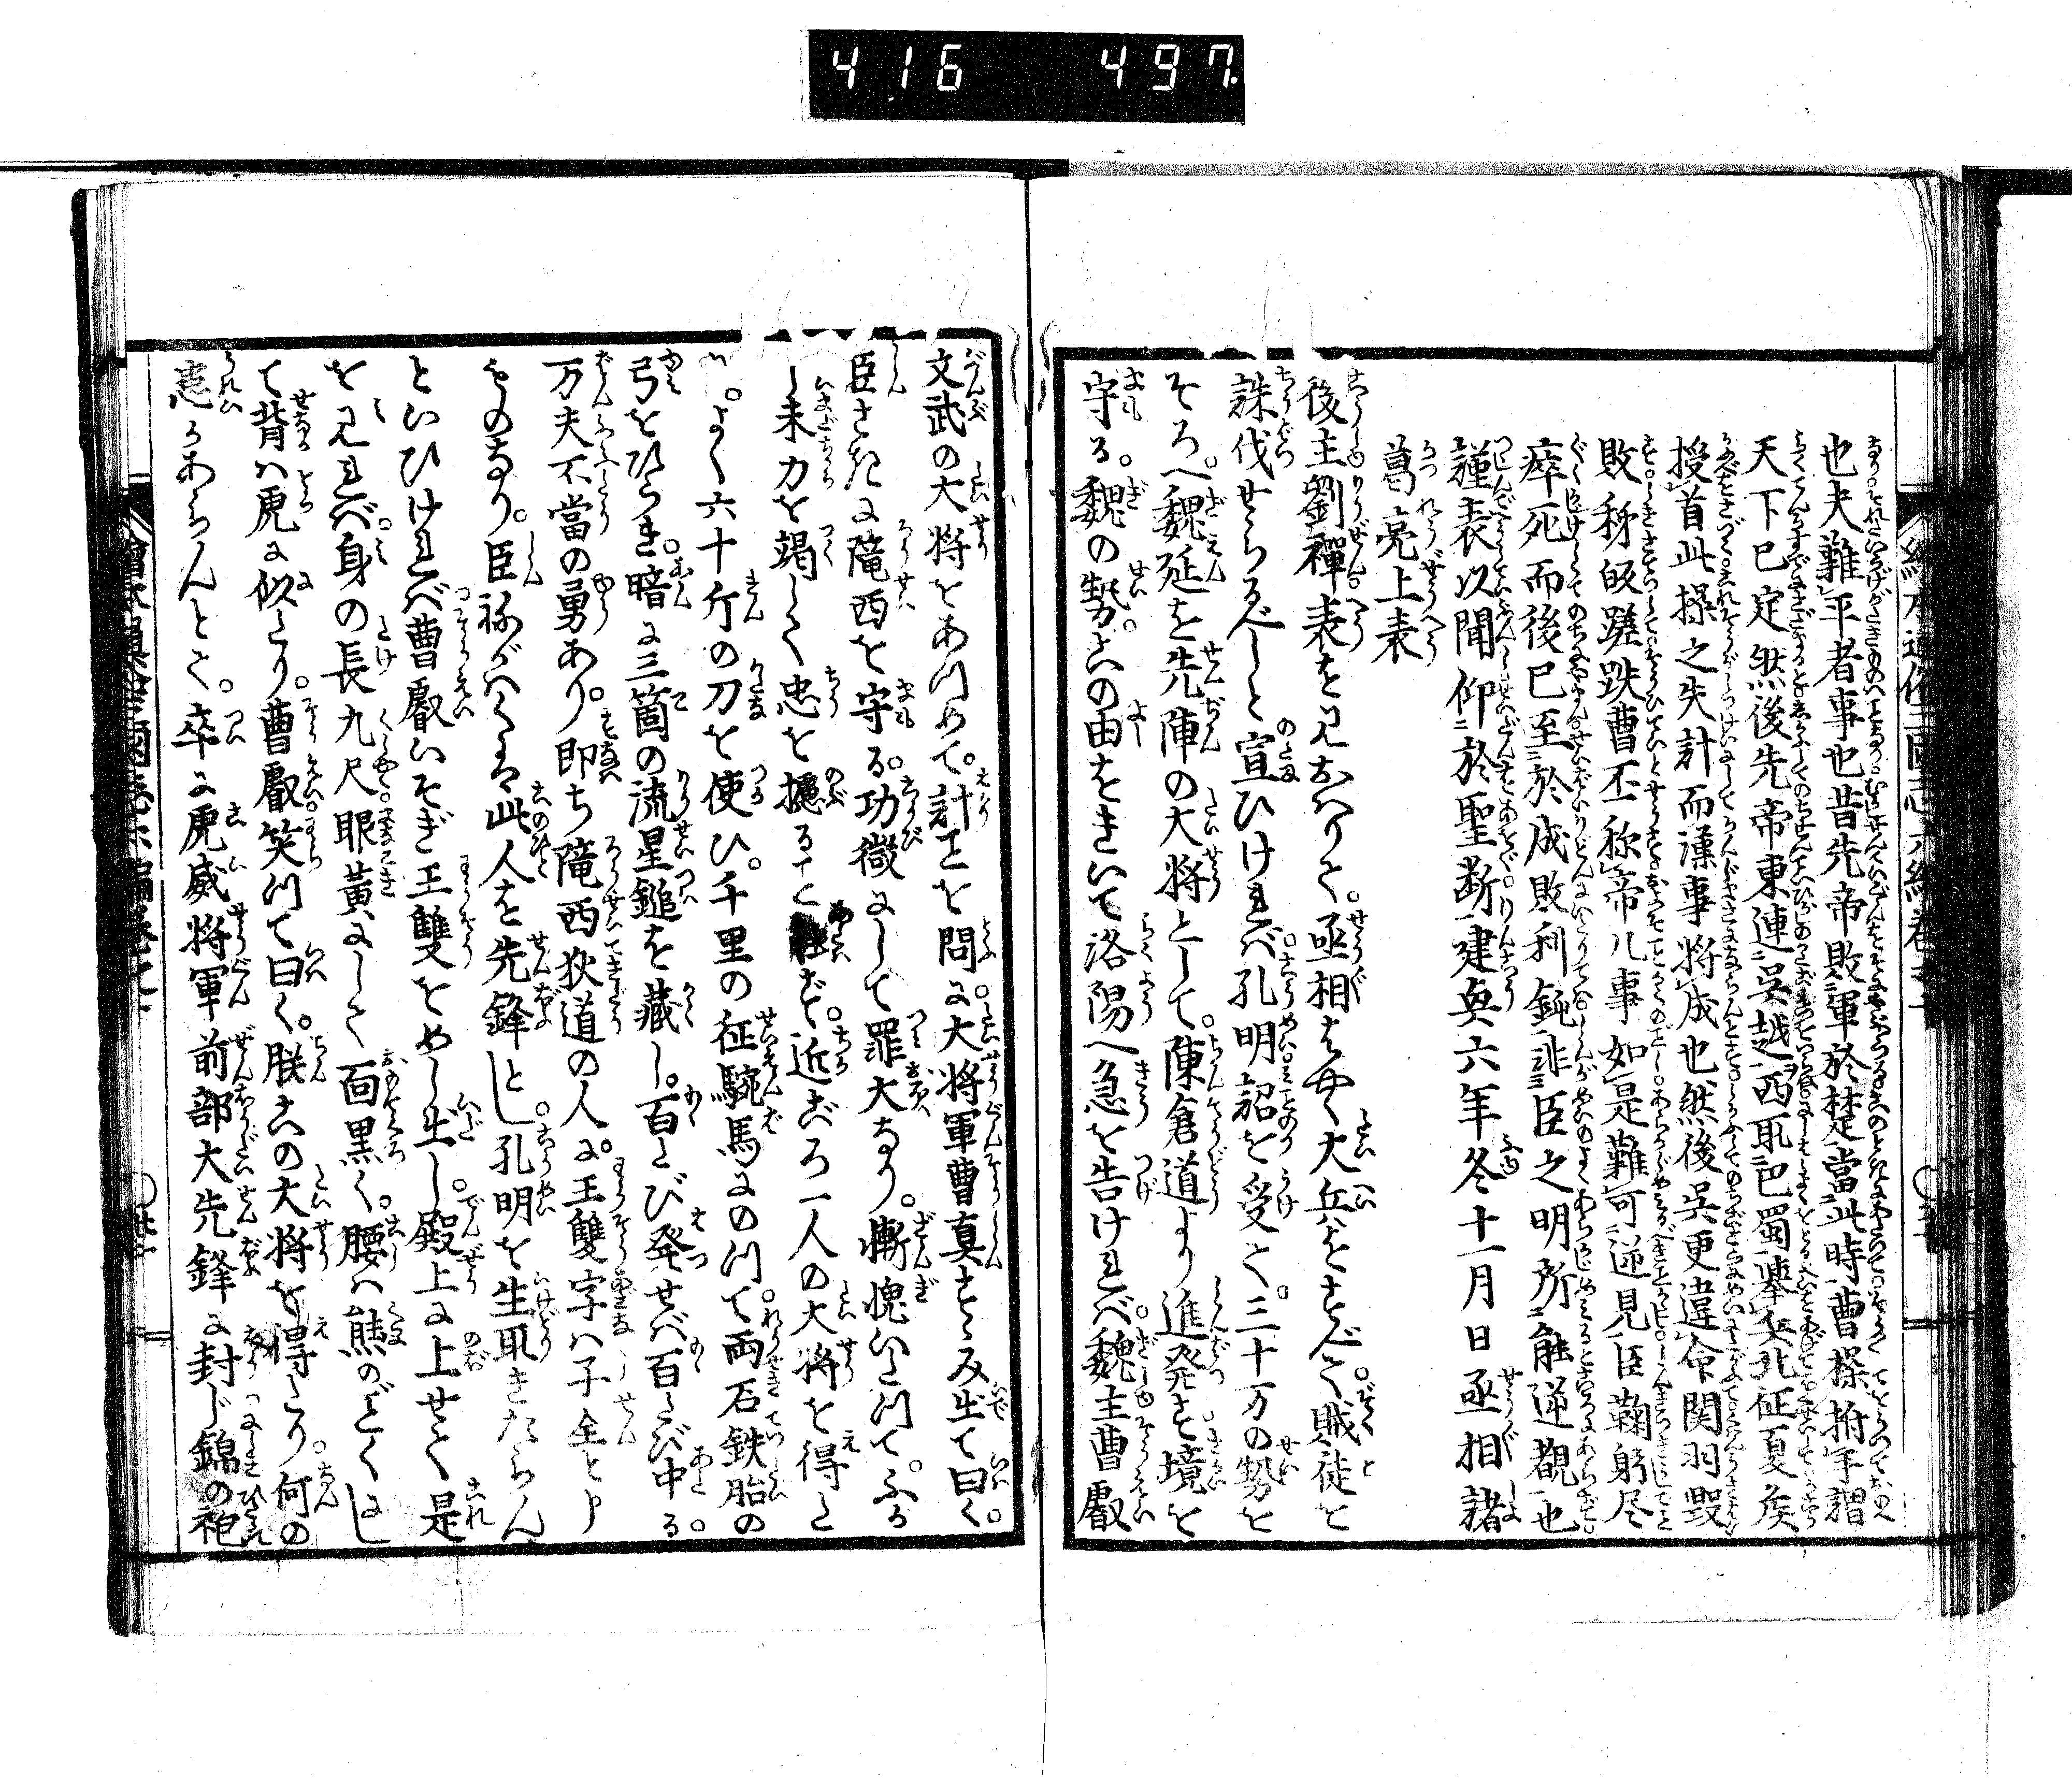 416 497.
也夫難平者事也昔先帝敗軍於楚當此時曹操拊手謂
天下已定然後先帝東連呉越西取巴蜀擧兵北征夏侯
授首此操之失計而漢事將成也然後呉更違命関羽毀
敗秭皈蹉跌曹丕称帝凡事如是難可逆見臣鞠躬尽
瘁死而後已至於成敗利鈍非臣之明所能逆覩也
謹表以聞仰於聖断建興六年冬十一月日丞相諸
葛亮上表
後主劉禪表を見おはりて。丞相はやく大兵をすゝべて。賊徒を
誅伐せらるべしと宣ひければ。孔明詔を受て。三十万の勢を
そろへ。魏延を先陣の大将として。陳倉道より進発す。境を
守る。魏の勢。この由をきいて洛陽へ急を告ければ。魏主曹叡
文武の大将をあつめて。計ことを問。に大将軍曹真すゝみ出て曰く。
臣さきに隴西を守る。功微にして罪大なり。慚愧いとつて。ふか
し未力を竭して忠を攄ること能ず。近ごろ一人の大将を得た
り。よく六十斤の刀を使ひ。千里の征騕馬にのつて。両石鉄胎の
弓をひらき。暗に三箇の流星鎚を藏し。百たび発せば百たび中る。
万夫不當の勇あり。即ち隴西狄道の人。に王雙字ハ子全と申
ものなり。臣ねがはくは此人を先鋒とし。孔明を生取きたらん
といひければ曹叡いそぎ王雙をめし出し。殿上に上せて是
を見れば。身の長九尺眼黄にして面黒く。腰ハ熊のごとくにし
て背ハ虎に似たり。曹叡笑つて曰く。朕この大将を得たり。何の
患かあらんとて。卒に虎威将軍前部大先鋒に封じ錦の袍